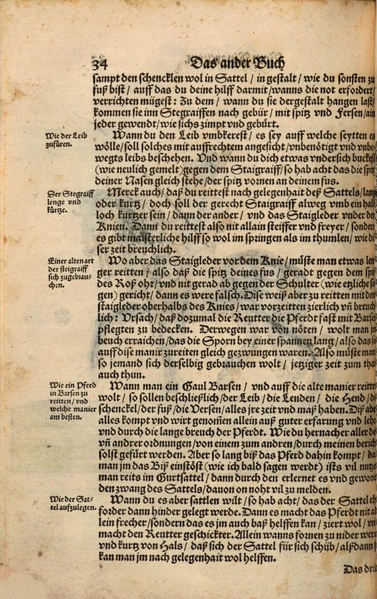 34 Das ander Buch
sampt den schencklen wol in Sattel / in gestalt / wie du sonsten zu
fuß bist / auff das du deine hilff darmit / wanns die not erfordert /
verrichten mügest: Zu dem / wann du sie dergestalt hangen last /
kommen sie im Stegraiffen nach gebür / mit spitz und Fersen / am
jeder gewendt / wie sichs zimpt und gebürt.
Wie der Leib
zufüren.
Wann du den Leib umbkerest / es sey auff welche seytten es
wölle / soll solches mit auffrechtem angesicht / unbenötigt und unbe
wegts leibs beschehen. Und wann du dich etwas undersich buckest
(wie neulich gemelt) gegen dem Staigraiff / so hab acht das die spitz
deiner Nasen gleich stehe / der spitz vornen an deinem fus.
Der Stegraiff
lenge und
kürtze.
Merck auch / daß du reittest nach gelegenheit deß Sattels / lang
oder kurtz / doch soll der gerecht Staigraiff alweg umb ein hal
loch kurtzer sein / dann der ander / und das Staigleder under de
Knien. Dann du reittest also nit allain steiffer und freyer / sonder
es gibt maisterliche hilff so wol im springen als im thumlen / wid
ser zeit breuchlich.
Einer alten art
der steigraiff
sich zugebrau-
chen.
Wo aber das Staigleder vor dem Knie / müste man etwas len
ger reitten / also daß die spitz deines fus / geradt gegen dem spi
des Roß ohr / und nit gerad ab gegen der Schulter (wie etzliche sa
gen) gericht / dann es were falsch. Dise weiß aber zu reitten mit de
staigleder oberhalb des Knies / war vorzeitten zierlich und breuch
lich: Ursach / daß dozumal die Reutter die Pferdt fast mit Barse
pflegten zu bedecken. Derwegen war von nöten / wolt man in
bauch erraichen / das die Sporn bey einer spannen lang / also das
auff dise manir zureiten gleich gezwungen waren. Also müste man
so jemand sich derselbig gebrauchen wolt / jetziger zeit zum tha
auch thun.
Wie ein Pferd
in Barsen zu
reitten / und
welche manier
am besten.
Wann man ein Gaul Barsen / und auff die alte manier reitte
wolt / so sollen beschließlich / der Leib / die Lenden / die Hend / die
schenckel / der fuß / die Versen / alles jre zeit und maß haben. Diß abe
alles kompt und wirt genomen allein auß guter erfarung und leh
und durch die lange breuch der Pferdt. Wie du hernacher aller de
vnd andrer ordnungen / von einem zum andren / durch meinen berich
solst gefürt werden. Aber so lang biß das Pferd dahin kompt / da
man jm das Biß einstöst (wie ich bald sagen werdt) ists vil nutze
man reits im Gurtsattel / dann durch den erlernet es und gewone
den zwang des Sattels / davon on noht vil zu melden.
Wie der Sat-
tel auffzulegen.
Wann du es aber sattlen wilt / so hab acht / das der Sattel eh
forder dann hinder gelegt werde. Dann es macht das Pferdt nit al
lein frecher / sondern das es jm auch baß helffen kan / ziert wol / un
macht den Reutter geschickter. Allein wanns fornen zu nider wer
und kurtz von Hals / daß sich der Sattel für sich schüb / alßdann
kan man jm nach gelegenheit wol helffen.
Das dri